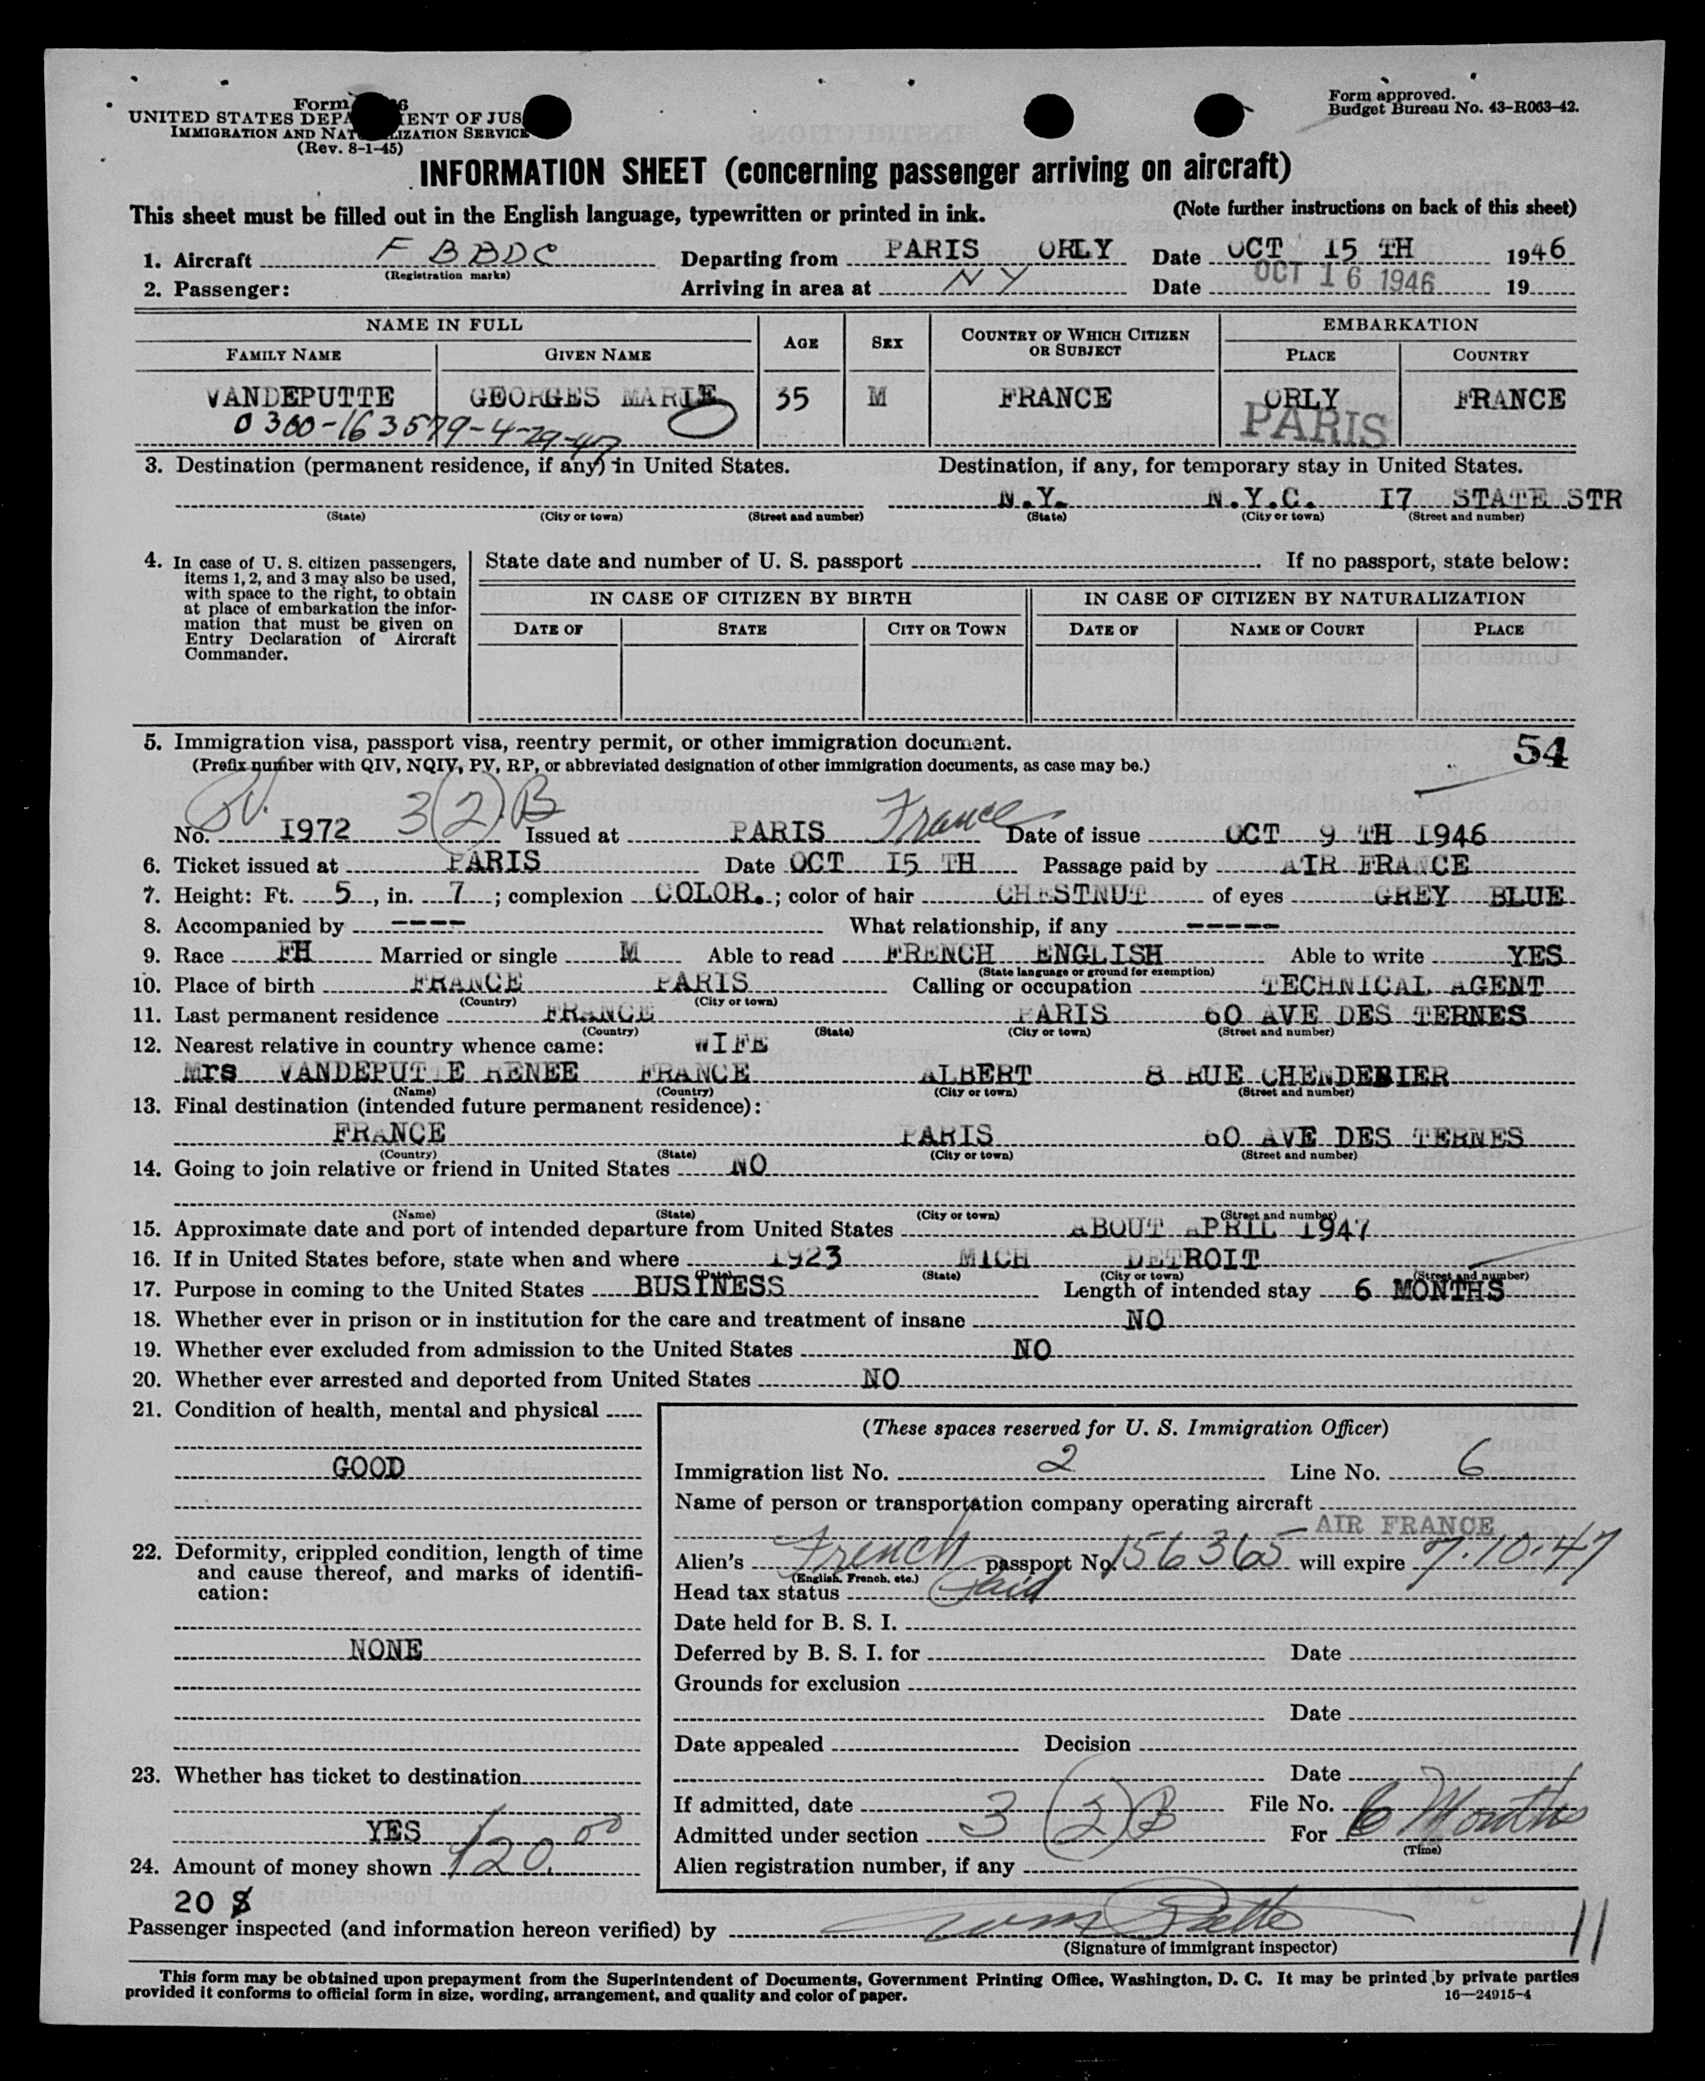 Form
UNITED STATES DEPA ENT OF JUS
IMMIGRATION AND NAT IZATION SERVICE
(Rev. 8-1-45)
Form approved.
Budget Bureau No. 43-R063-42.
INFORMATION SHEET (concerning passenger arriving on aircraft)
This sheet must be filled out in the English language, typewritten or printed in ink. (Note further instructions on back of this sheet)
1. Aircraft F BBDC Departing from PARIS ORLY Date OCT 15 TH 1946
(Registration marks)
2. Passenger: Arriving in area at N Y Date OCT 16 1946 19
NAME IN FULL AGE SEX COUNTRY OF WHICH CITIZEN OR SUBJECT EMBARKATION
FAMILY NAME GIVEN NAME PLACE COUNTRY
VANDEPUTTE GEORGES MARIE 35 M FRANCE ORLY FRANCE
0300-163579-4-29-47 PARIS
3. Destination (permanent residence, if any) in United States. Destination, if any, for temporary stay in United States.
N.Y. N.Y.C. I7 STATE STR
(State) (City or town) (Street and number) (State) (City or town) (Street and number)
4. In case of U. S. citizen passengers, items 1, 2, and 3 may also be used, with space to the right, to obtain at place of embarkation the information that must be given on Entry Declaration of Aircraft Commander.
State date and number of U. S. passport If no passport, state below:
IN CASE OF CITIZEN BY BIRTH IN CASE OF CITIZEN BY NATURALIZATION
DATE OF STATE CITY OR TOWN DATE OF NAME OF COURT PLACE
5. Immigration visa, passport visa, reentry permit, or other immigration document. 54
(Prefix number with QIV, NQIV, PV, RP, or abbreviated designation of other immigration documents, as case may be.)
No. I972 3(2)B Issued at PARIS France Date of issue OCT 9 TH 1946
6. Ticket issued at PARIS Date OCT I5 TH Passage paid by AIR FRANCE
7. Height: Ft. 5, in. 7; complexion COLOR.; color of hair CHESTNUT of eyes GREY BLUE
8. Accompanied by ---- What relationship, if any -----
9. Race FH Married or single M Able to read FRENCH ENGLISH Able to write YES
(State language or ground for exemption)
10. Place of birth FRANCE PARIS Calling or occupation TECHNICAL AGENT
(Country) (City or town)
11. Last permanent residence FRANCE PARIS 60 AVE DES TERNES
(Country) (State) (City or town) (Street and number)
12. Nearest relative in country whence came: WIFE
Mrs VANDEPUTTE RENEE FRANCE ALBERT 8 RUE CHENDEBIER
(Name) (Country) (City or town) (Street and number)
13. Final destination (intended future permanent residence):
FRANCE PARIS 60 AVE DES TERNES
(Country) (State) (City or town) (Street and number)
14. Going to join relative or friend in United States NO
(Name) (State) (City or town) (Street and number)
15. Approximate date and port of intended departure from United States ABOUT APRIL 1947
16. If in United States before, state when and where 1923 MICH DETROIT
(Date) (State) (City or town) (Street and number)
17. Purpose in coming to the United States BUSINESS Length of intended stay 6 MONTHS
18. Whether ever in prison or in institution for the care and treatment of insane NO
19. Whether ever excluded from admission to the United States NO
20. Whether ever arrested and deported from United States NO
21. Condition of health, mental and physical
GOOD
22. Deformity, crippled condition, length of time and cause thereof, and marks of identification:
NONE
23. Whether has ticket to destination
YES
24. Amount of money shown $120.00
20 $
(These spaces reserved for U. S. Immigration Officer)
Immigration list No. 2 Line No. 6
Name of person or transportation company operating aircraft
AIR FRANCE
Alien's French passport No. 156365 will expire 7-10-47
(English, French, etc.)
Head tax status Paid
Date held for B. S. I.
Deferred by B. S. I. for Date
Grounds for exclusion
Date
Date appealed Decision
Date
If admitted, date File No.
Admitted under section 3(2)B For 6 Months
(Time)
Alien registration number, if any
Passenger inspected (and information hereon verified) by 11
(Signature of immigrant inspector)
This form may be obtained upon prepayment from the Superintendent of Documents, Government Printing Office, Washington, D. C. It may be printed by private parties
provided it conforms to official form in size, wording, arrangement, and quality and color of paper. 16—24915-4